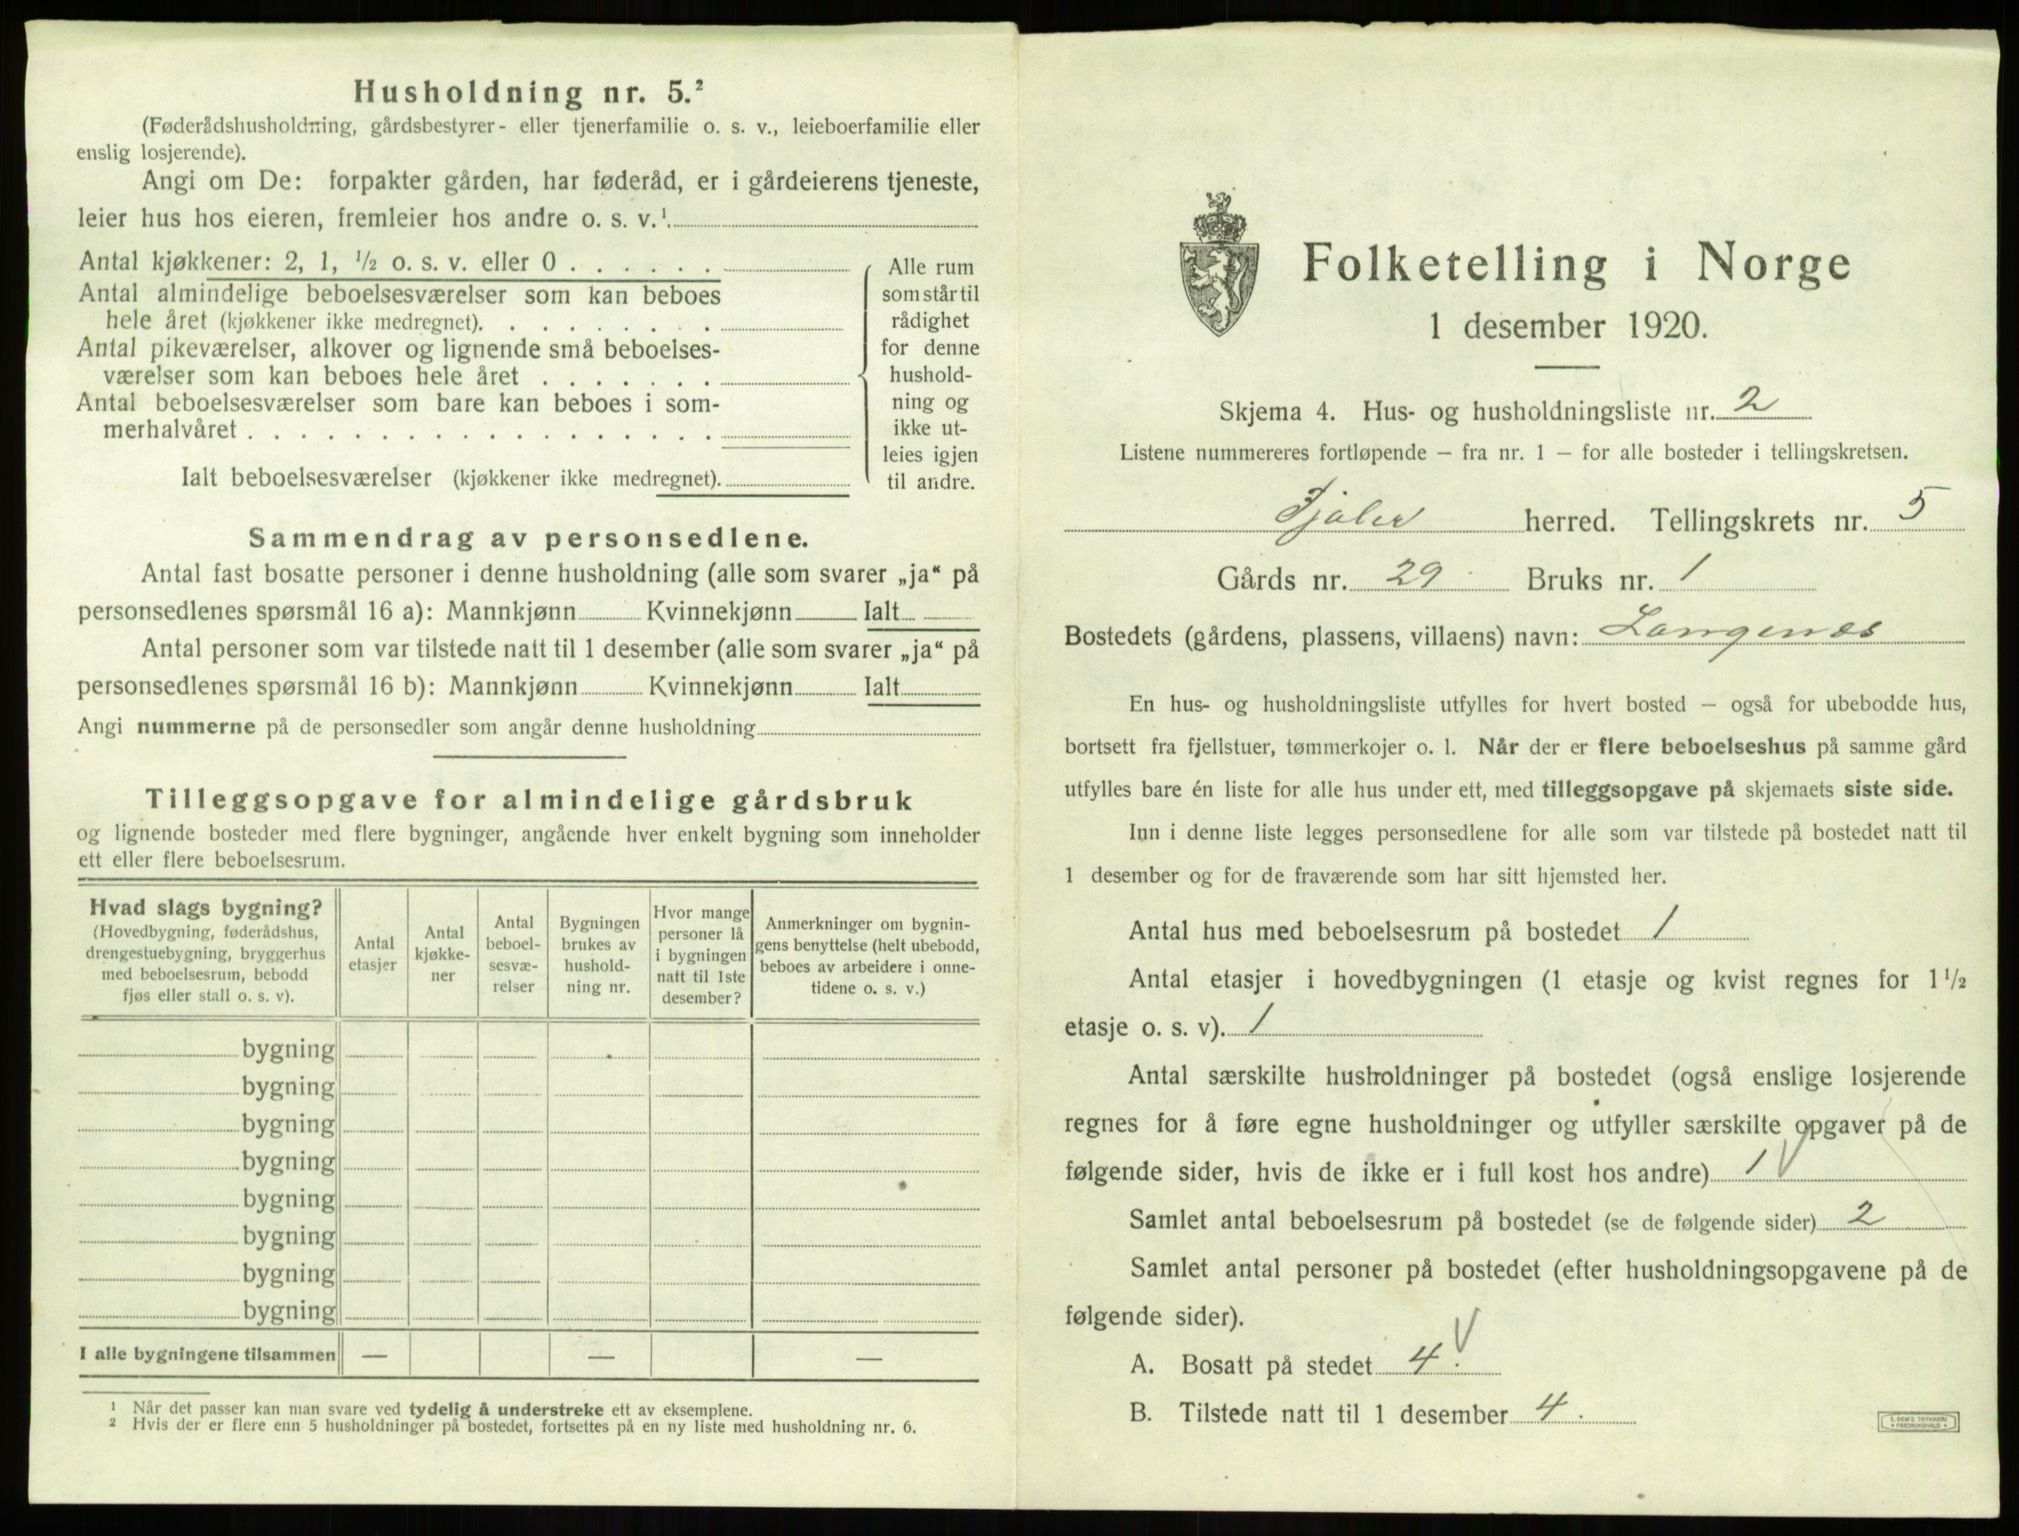 Husholdning nr. 5.²
(Føderådshusholdning, gårdsbestyrer- eller tjenerfamilie o. s. v., leieboerfamilie eller
enslig losjerende).
Angi om De: forpakter gården, har føderåd, er i gårdeierens tjeneste,
leier hus hos eieren, fremleier hos andre o. s. v.¹
Antal kjøkkener: 2, 1, ½ o. s. v. eller 0
Antal almindelige beboelsesværelser som kan beboes
hele året (kjøkkener ikke medregnet).
Antal pikeværelser, alkover og lignende små beboelses-
værelser som kan beboes hele året
Antal beboelsesværelser som bare kan beboes i som-
merhalvåret
Ialt beboelsesværelser (kjøkkener ikke medregnet).
Alle rum
som står til
rådighet
for denne
hushold-
ning og
ikke ut-
leies igjen
til andre.
Sammendrag av personsedlene.
Antal fast bosatte personer i denne husholdning (alle som svarer „ja“ på
personsedlenes spørsmål 16 a): Mannkjønn Kvinnekjønn Ialt
Antal personer som var tilstede natt til 1 desember (alle som svarer „ja“ på
personsedlenes spørsmål 16 b): Mannkjønn Kvinnekjønn Ialt
Angi nummerne på de personsedler som angår denne husholdning
Tilleggsopgave for almindelige gårdsbruk
og lignende bosteder med flere bygninger, angående hver enkelt bygning som inneholder
ett eller flere beboelsesrum.
Hvad slags bygning?
(Hovedbygning, føderådshus,
drengestuebygning, bryggerhus
med beboelsesrum, bebodd
fjøs eller stall o. s. v).
Antal
etasjer
Antal
kjøkke-
ner
Antal
beboel-
sesvæ-
relser
Bygningen
brukes av
hushold-
ning nr.
Hvor mange
personer lå
i bygningen
natt til 1ste
desember?
Anmerkninger om bygnin-
gens benyttelse (helt ubebodd,
beboes av arbeidere i onne-
tidene o. s. v.)
bygning
bygning
bygning
bygning
bygning
bygning
bygning
bygning
I alle bygningene tilsammen — — —
¹ Når det passer kan man svare ved tydelig å understreke ett av eksemplene.
² Hvis der er flere enn 5 husholdninger på bostedet, fortsettes på en ny liste med husholdning nr. 6.
Folketelling i Norge
1 desember 1920.
Skjema 4. Hus- og husholdningsliste nr. 2
Listene nummereres fortløpende – fra nr. 1 – for alle bosteder i tellingskretsen.
Fjaler herred. Tellingskrets nr. 5
Gårds nr. 29 Bruks nr. 1
Bostedets (gårdens, plassens, villaens) navn: Langenes
En hus- og husholdningsliste utfylles for hvert bosted – også for ubebodde hus,
bortsett fra fjellstuer, tømmerkojer o. l. Når der er flere beboelseshus på samme gård
utfylles bare én liste for alle hus under ett, med tilleggsopgave på skjemaets siste side.
Inn i denne liste legges personsedlene for alle som var tilstede på bostedet natt til
1 desember og for de fraværende som har sitt hjemsted her.
Antal hus med beboelsesrum på bostedet 1
Antal etasjer i hovedbygningen (1 etasje og kvist regnes for 1½
etasje o. s. v). 1
Antal særskilte husholdninger på bostedet (også enslige losjerende
regnes for å føre egne husholdninger og utfyller særskilte opgaver på de
følgende sider, hvis de ikke er i full kost hos andre) 1
Samlet antal beboelsesrum på bostedet (se de følgende sider) 2
Samlet antal personer på bostedet (efter husholdningsopgavene på de
følgende sider).
A. Bosatt på stedet 4
B. Tilstede natt til 1 desember 4
E. SEM'S TRYKKERI
FREDRIKSHALD